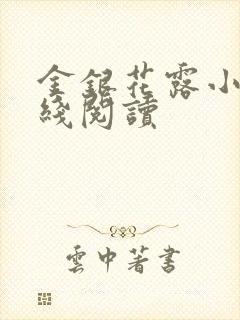 金銀花露小
綫閱讀
雲中著書